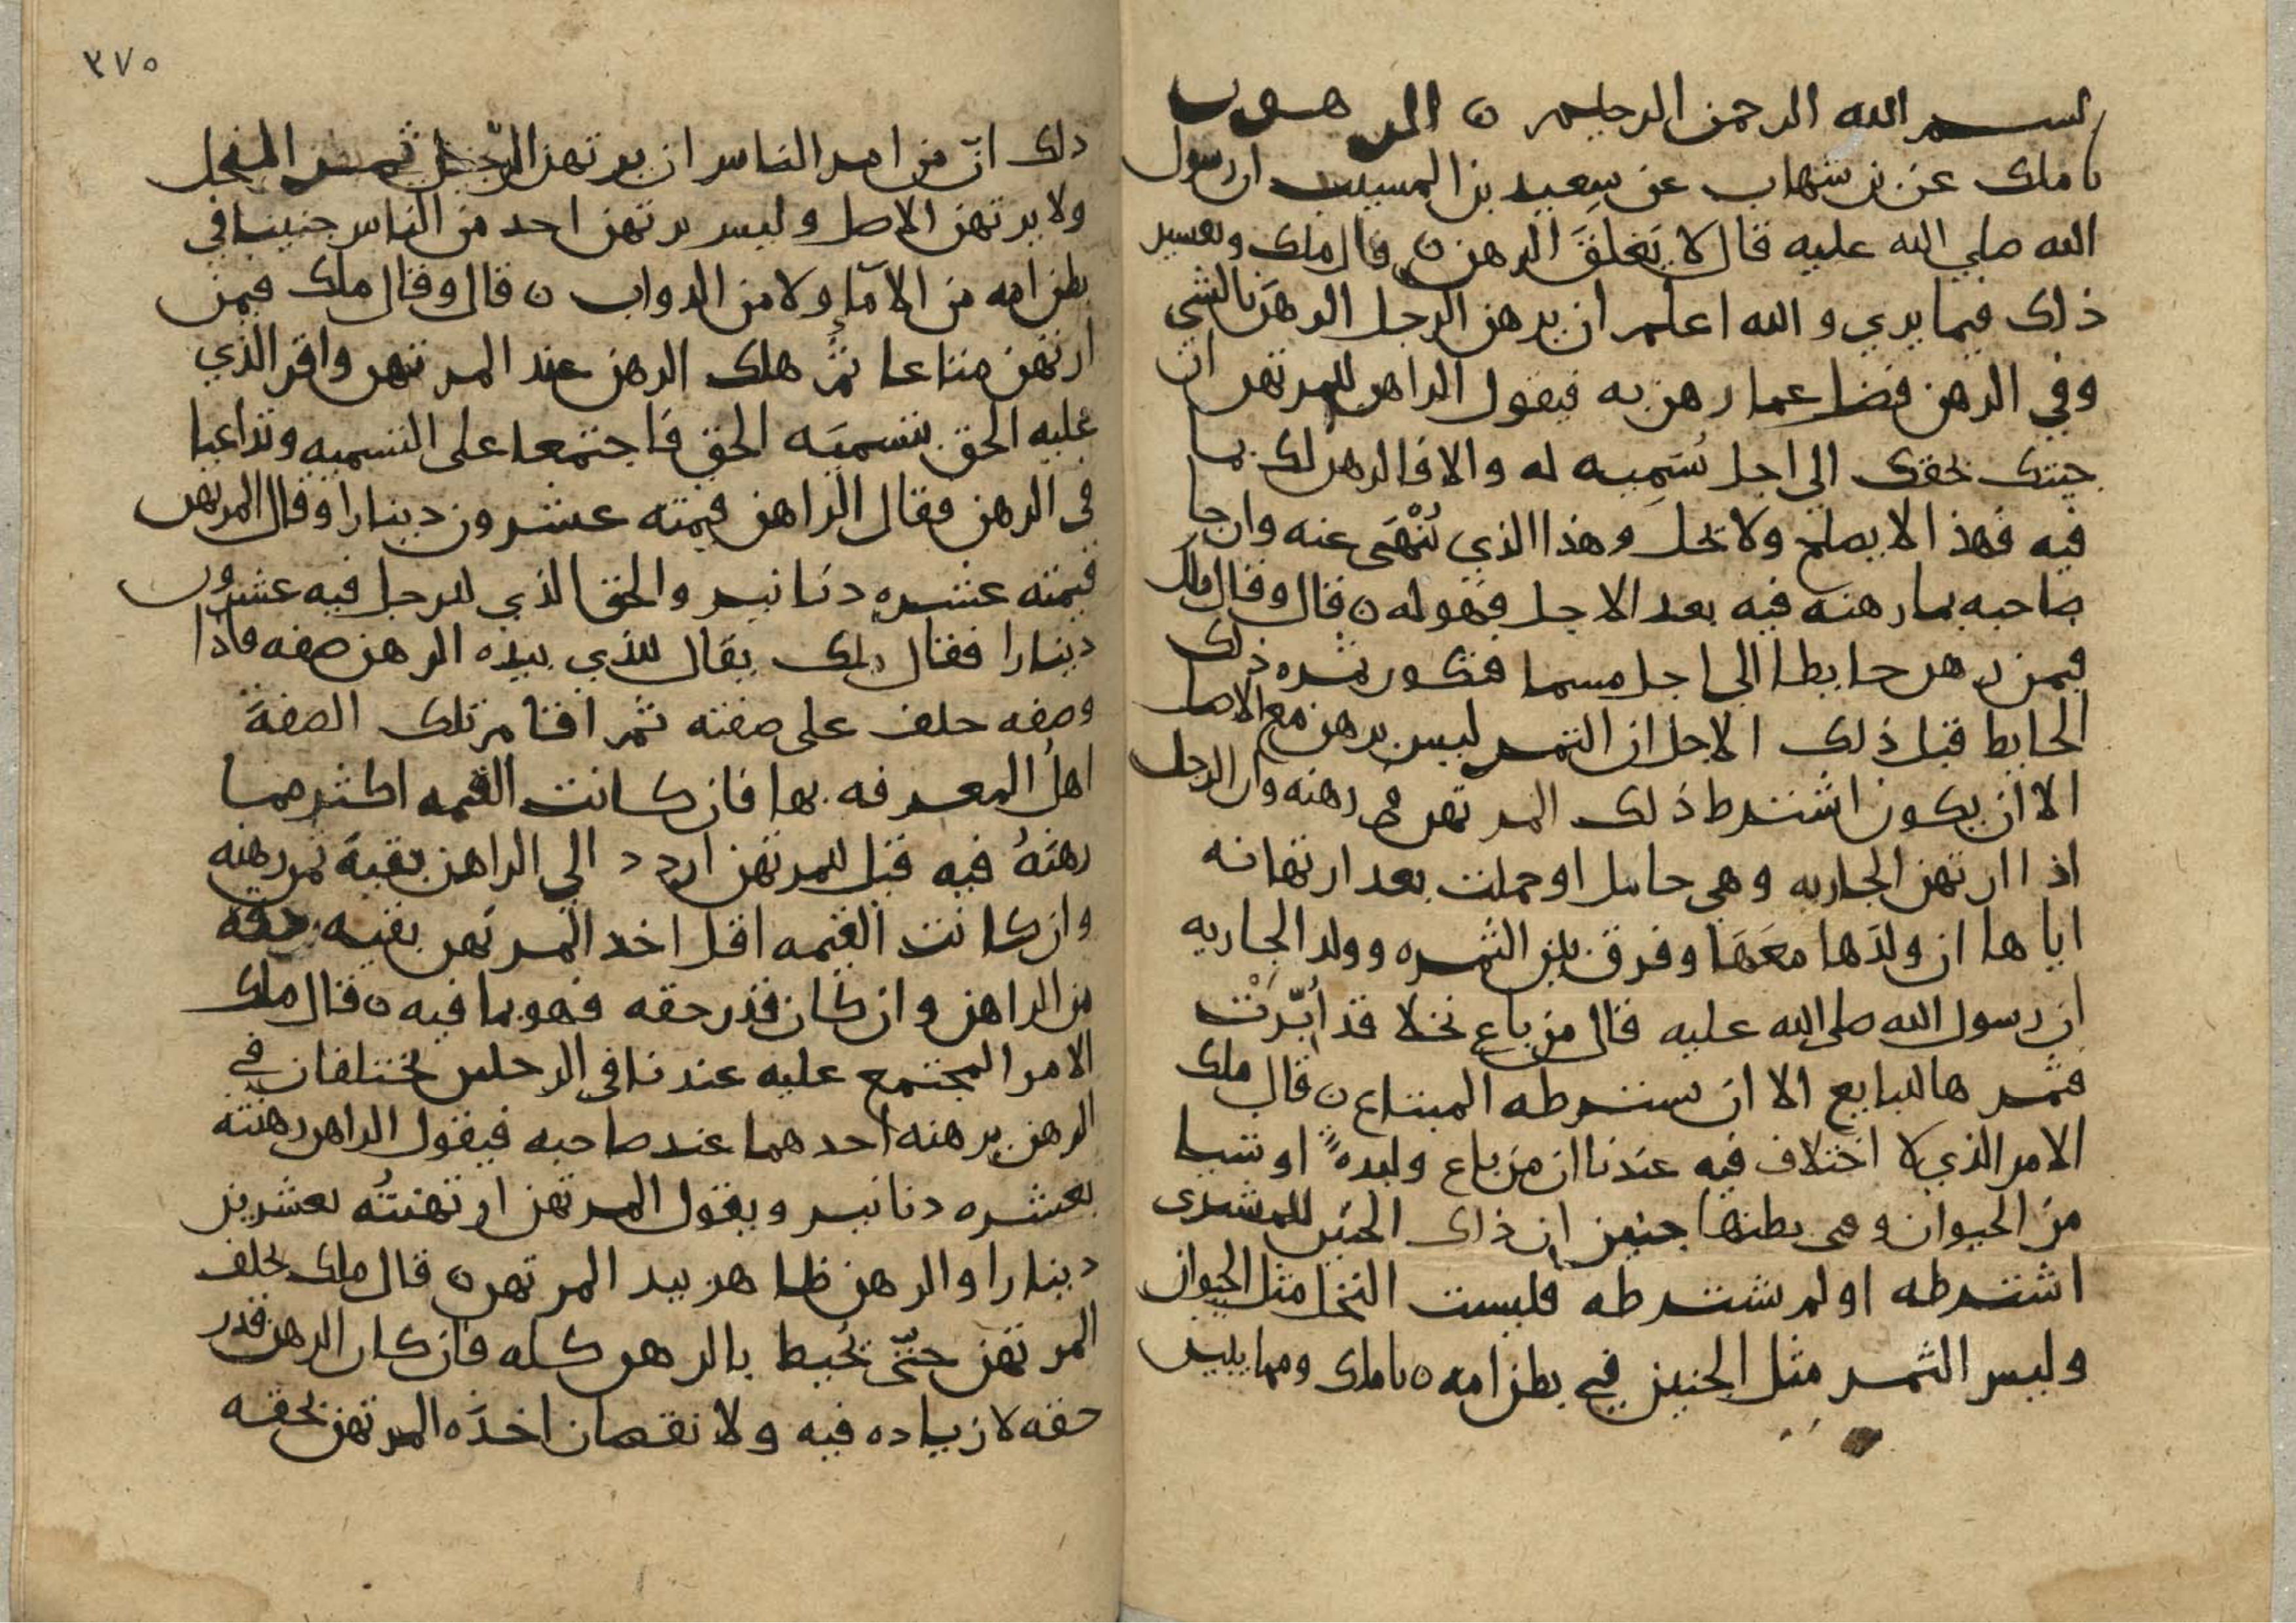 بسم الله الرحمن الرحيم ن الرهون
نا ملك عن بن شهاب عن سعيد بن المسيب ان رسول
الله صلي الله عليه قال لا يَغلَقَ الرهن ن قال ملك وتفسير
ذلك فيما يري والله اعلم ان يرهن الرجل الرهنَ بالشي
وفي الرهن فضل عما رهن به فيقول الراهن للمرتهن ان
جيتك بحقك الي اجل يُسَمِيه له والا فالرهن لك بما
فيه فهذا لا يصلح ولا يحل وهذا الذي نُنْهَى عنه وان جا
صاحبه بما رهنه فيه بعد الاجل فهو له ن قال وقال ملك
فيمن رهن حايطا الي اجل مسما فتكون ثمره ذلك
الحايط قبل ذلك الاجل ان الثمر ليس برهن مع الاصل
الا ان يكون اشترط ذلك المرتهن في رهنه وان الرجل
اذا ارتهن الجاريه وهي حامل او حملت بعد ارتهانه
اياها ان ولدَها معَهَا وفرق بين الثمره وولد الجاريه
ان رسول الله صلى الله عليه قال من باع نخلا قد اُبّرَتْ
فثمرها للبايع الا ان يشترطه المبتاع ن قال ملك
الامر الذي لا اختلاف فيه عندنا ان من باع وليدهً او شيا
من الحيوان وفي بطنها جنين ان ذلك الجنين للمشترى
اشترطه او لم يشترطه فليست النخل مثل الحيوان
وليس الثمر مثل الجنين في بطن امه ن نا ملك ومما يبين
٣٧٥
ذلك انّ من امر الناس ان يرتهن الرّجل ثمر النخل
ولا يرتهن الاصل وليس يرتهن احد من الناس جنينا في
بطن امه من الامآءِ ولا من الدواب ن قال وقال ملك فيمن
ارتهن متاعا ثمَّ هلك الرهن عند المرتهن واقر الذي
عليه الحق بتسميَه الحق فاجتمعا على التسميه وتداعيا
في الرهن فقال الراهن قيمته عشرون دينارا وقال المرتهن
قيمته عشره دنانير والحق الذي للرجل فيه عشرون
دينارا فقال ملك يقال للذي بيده الرهن صفه فاذا
وصفه حلف على صفته ثم اقام تلك الصفةَ
اهلُ المعرفه بها فان كانت القيمه اكثر مما
رهنهُ فيه قيل للمرتهن اردد الي الراهن بقيةَ رهنه
وان كانت القيمه اقل اخذ المرتهن بقيه حقه
من الراهن وان كان قدر حقه فهو بما فيه ن قال ملك
الامر المجتمع عليه عندنا في الرجلين يختلفان في
الرهن يرهنه احدهما عند صاحبه فيقول الراهن رهنته
بعشره دنانير ويقول المرتهن ارتهنتُه بعشرين
دينارا والرهن ظاهر بيد المرتهن ن قال ملك يحلف
المرتهن حتّى يُحيط بالرهن كله فان كان الرهن قدر
حقه لا زياده فيه ولا نقصان اخذَه المرتهن بحقه